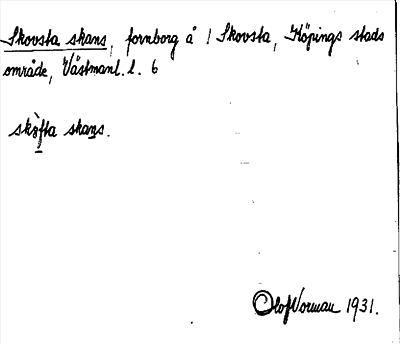 Skovsta skans, fornborg å / Skovsta, Köpings stads
område, Västmanl. l. 6
skò̱fta skaṉs.
Olof Norman 1931.